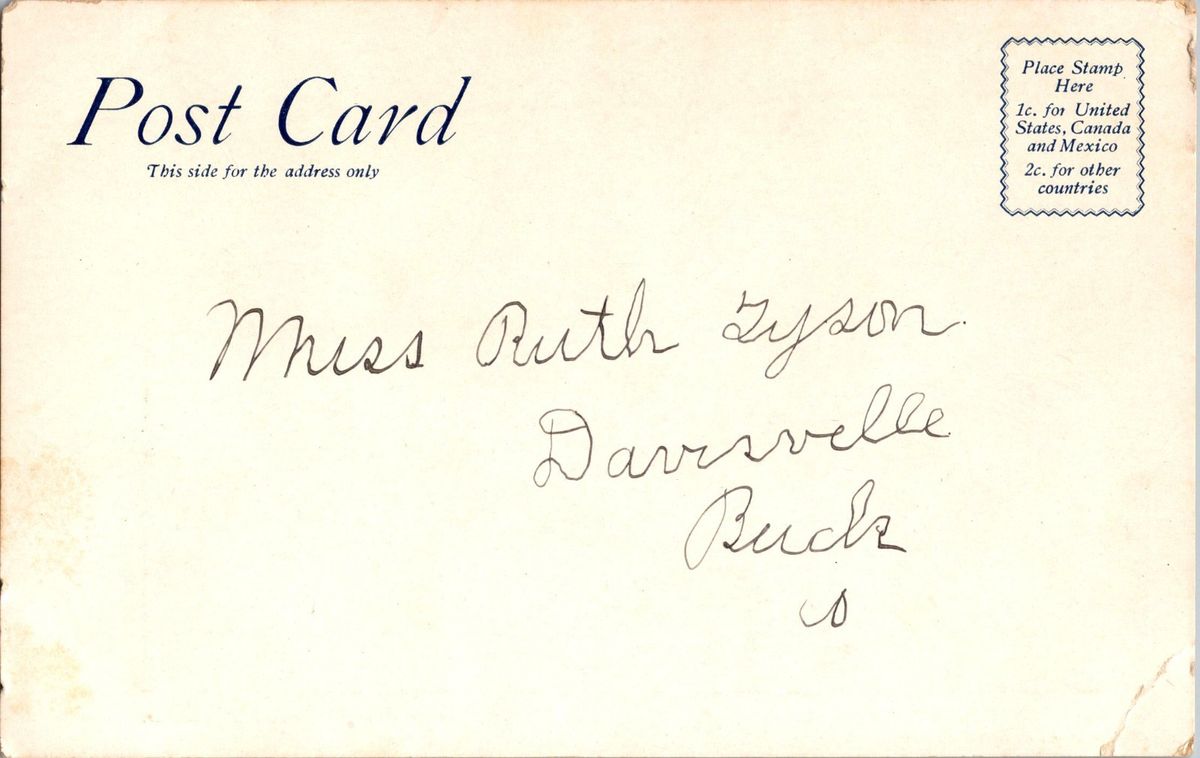 Post Card
This side for the address only
Place Stamp
Here
1c. for United
States, Canada
and Mexico
2c. for other
countries
Miss Ruth Tyson
Davisville
Buck
co